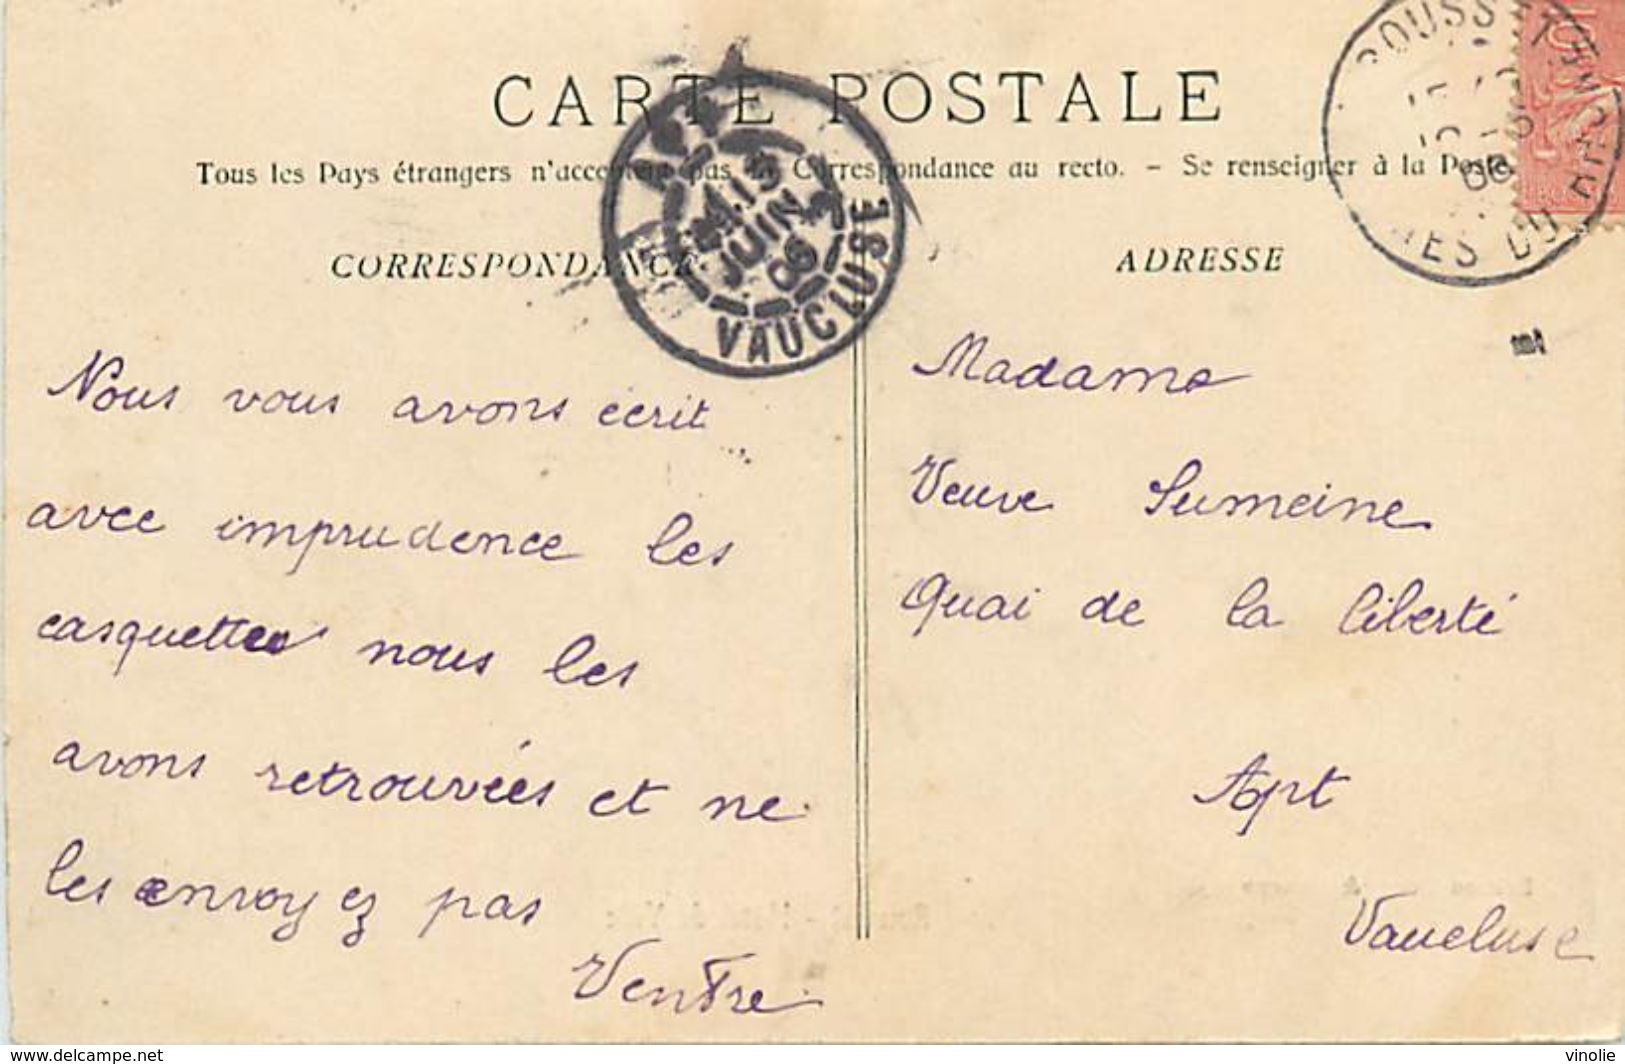 CARTE POSTALE
Tous les Pays étrangers n'acceptent pas la Correspondance au recto. - Se renseigner à la Poste
CORRESPONDANCE
ADRESSE
APT
15
JUIN
06
VAUCLUSE
ROUSSET
RHÔNE
06
Nous vous avons écrit
avec imprudence les
casquettes nous les
avons retrouvées et ne
les envoyez pas
Ventre
Madame
Veuve Sumeine
Quai de la liberté
Apt
Vaucluse
www.delcampe.net
vinolie